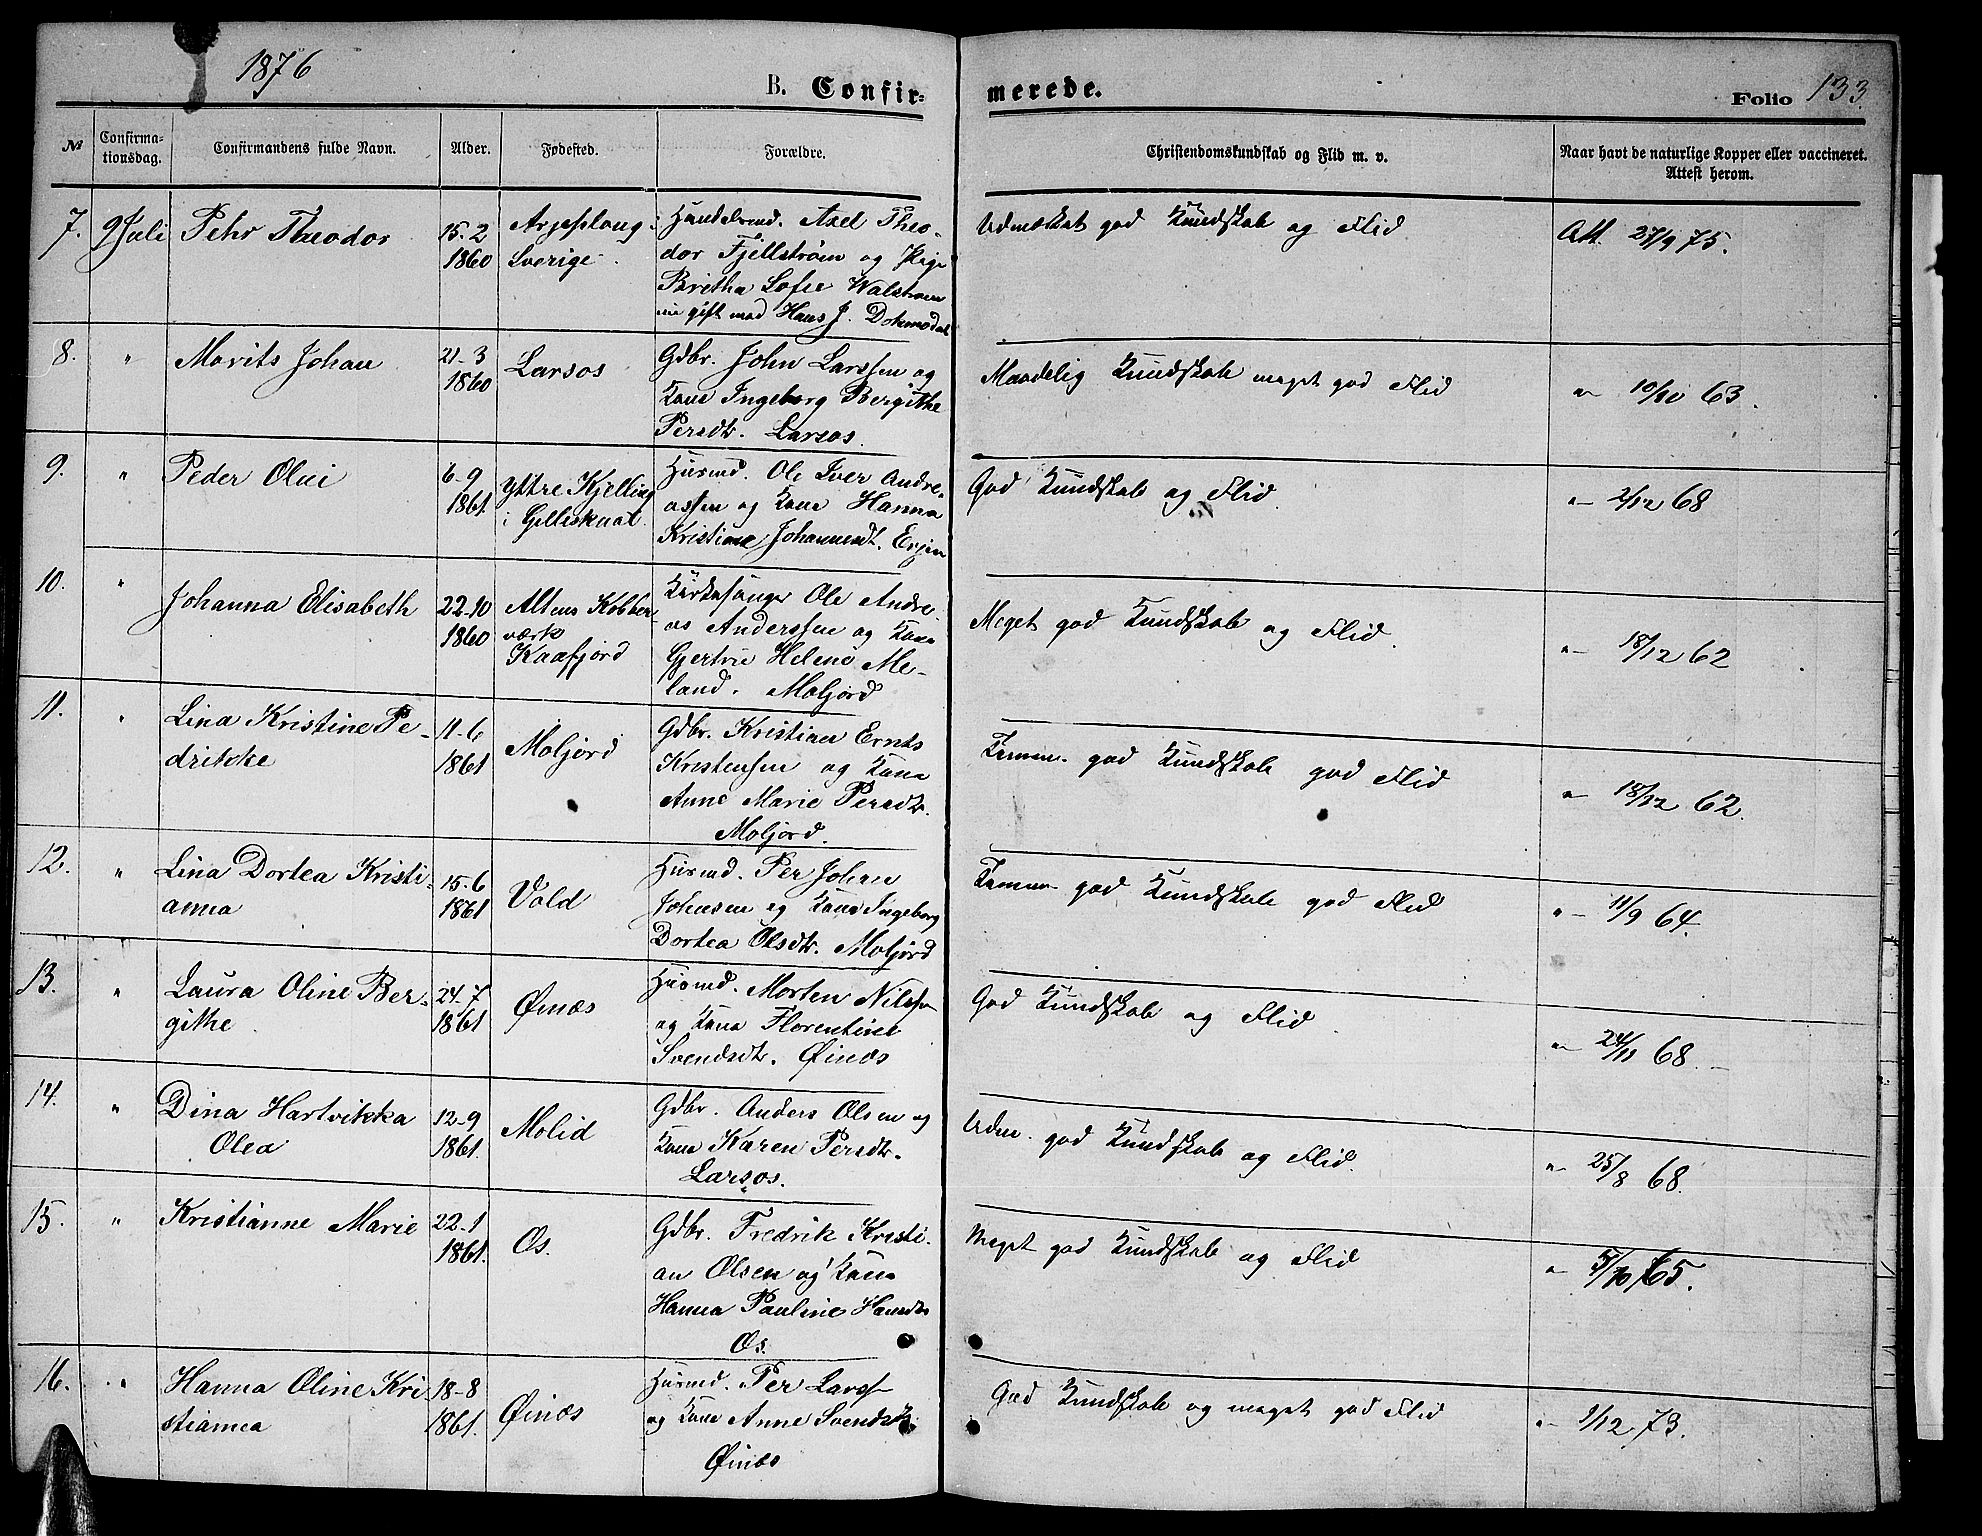 1876
B. Confir-
merede.
Folio 133.
№
Confirma-
tionsdag.
Confirmandens fulde Navn.
Alder.
Fødested.
Forældre.
Christendomskundskab og Flid m. v.
Naar havt de naturlige Kopper eller vaccineret.
Attest herom.
7. 9 Juli Pehr Theodor 15-2 1860 Arjeplong Sverige
Handelsmd. Axel Theo-
dor Fjellstrøm og Pige
Britha Sofie Walstrøm
nu gift med Hans J.
Udmærket god Kundskab og Flid
Att. 27/9 75.
8. " Morits Johan 21-3 1860 Larsos
Gdbr. John Larssen og
Kone Ingeborg Bergithe
Persdtr. Larsos.
Maadelig Kundskab meget god Flid
"- 19/10 63.
9. " Peder Olai 6-9 1861 Yttre Kjelling i Gilleskaal.
Husmd. Ole Iver Andre-
assen og Kone Hanna
Kristine Johannesdt.
God Kundskab og Flid.
"- 2/12 68
10. " Johanna Elisabeth 22-10 1860 Altens Kobber-
værk
Kaafjord
Kirkesanger Ole Andre-
as Anderssen og Kone
Gjertrü Helene Me-
land. Moljord
Meget god Kundskab og Flid.
"- 18/12 62
11. " Lina Kristine Pe-
drikke 11-6 1861 Moljord
Gdbr. Kristian Ernts
Kristensen og Kone
Anne Marie Persdtr.
Moljord.
Temm. god Kundskab god Flid
"- 18/12 62.
12. " Lina Dortea Kristi-
anna 15-6 1861 Vold
Husmd. Per Johan
Johnsen og Kone Ingeborg
Dortea Olsdtr. Moljord
Temm. god Kundskab god Flid
"- 11/9 64.
13. " Laura Oline Ber-
githe. 24-7 1861 Øinæs
Husmd. Morten Nilssen
og Kone Florentine
Svendsdt. Øinæs
God Kundskab og Flid.
"- 24/11 68.
14. " Dina Hartvikka
Olea 12-9 1861. Molid
Gdbr. Anders Olsen og
Kone Karen Persdtr.
Larsos.
Udm. god Kundskab og Flid.
"- 25/8 68.
15. " Kristianne Marie 22-1 1861. Os.
Gdbr. Fredrik Kristi-
an Olsen og Kone
Hanna Pauline Hansdtr
Os.
Meget god Kundskab og Flid
"- 5/10 65.
16. " Hanna Oline Kri
stianna 18-8 1861. Øinæs
Husmd. Per Larss-
og Kone Anne Svendsdt.
Øinæs
God Kundskab og meget god Flid
"- 1/12 73.